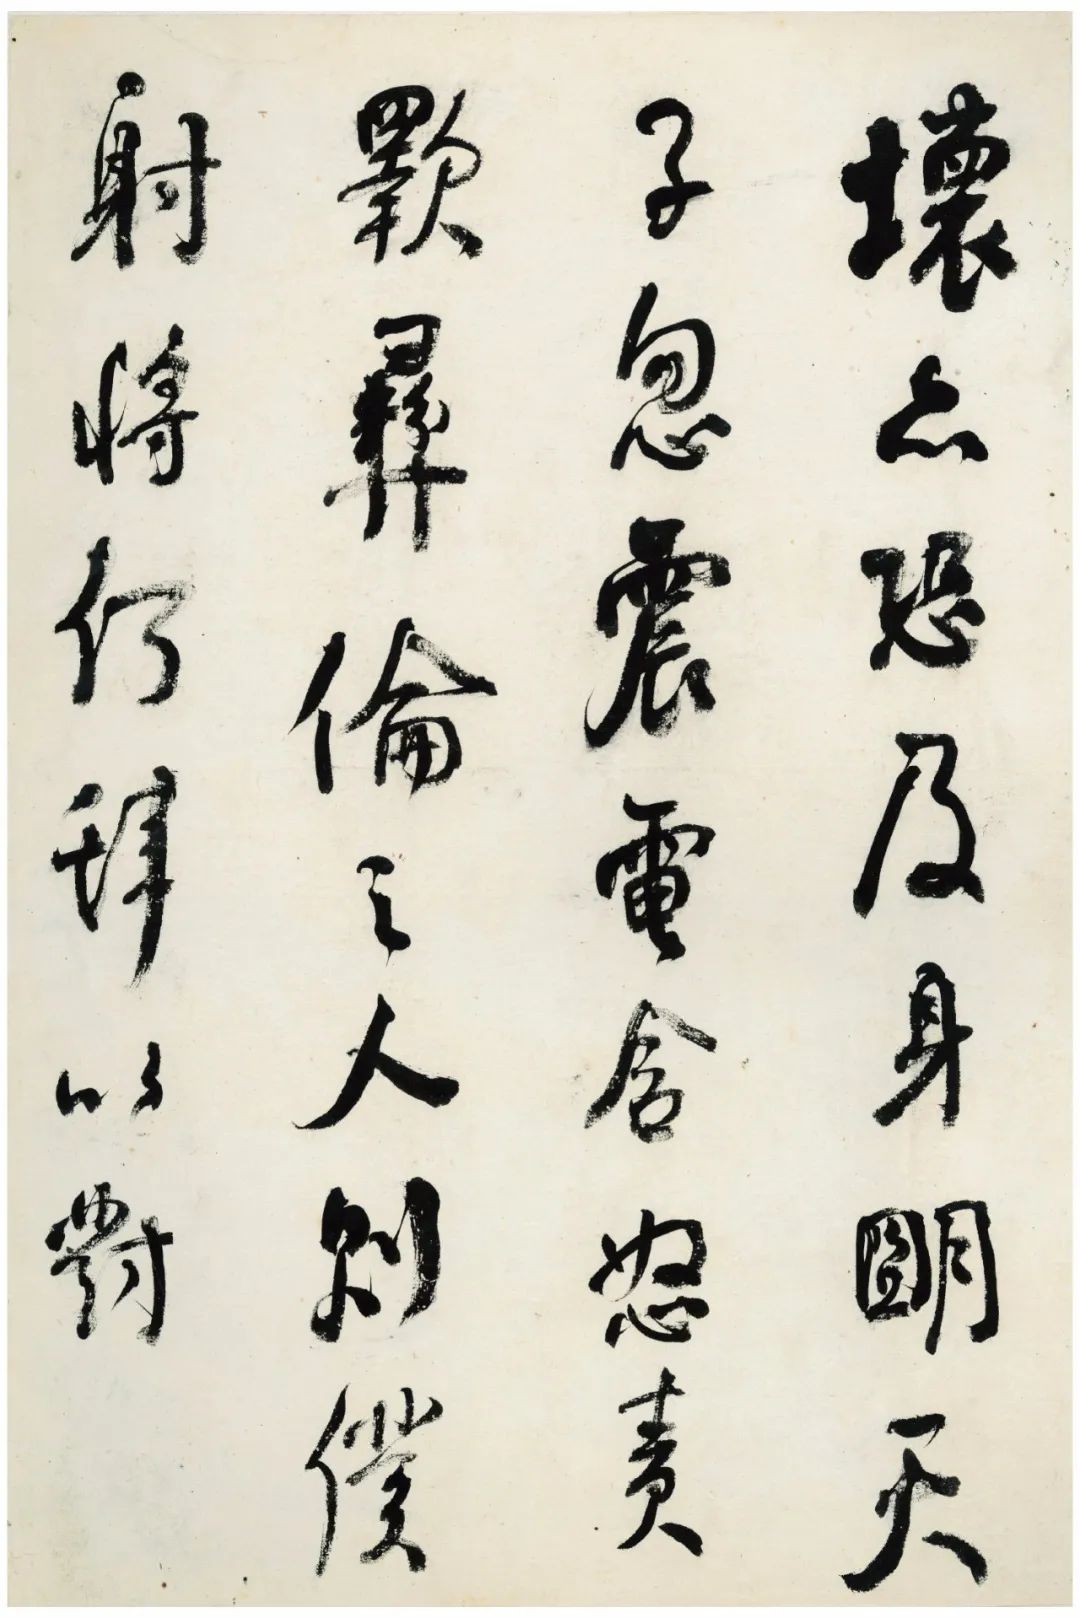 壞亦恐及身朙天
子忽震電含怒責
歝彝倫之人則僕
射將何辞以對